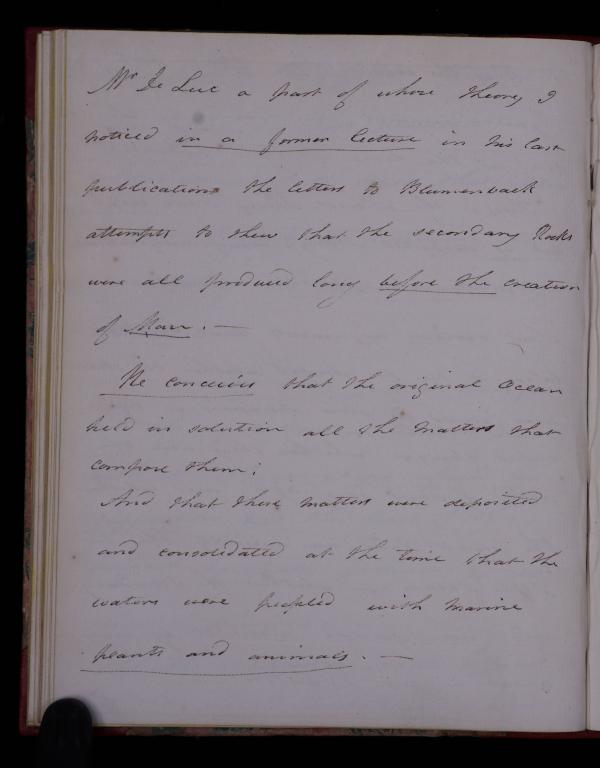 Mr De Luc a part of whose theory I
noticed in a former lecture in his last
publications the letters to Blumenback
attempts to shew that the secondary Rocks
were all produced long before the creation
of Man. —
He conceives that the original Ocean
held in solution all the matters that
compose them;
And that these matters were deposited
and consolidated at the time that the
waters were peopled with marine
plants and animals. —